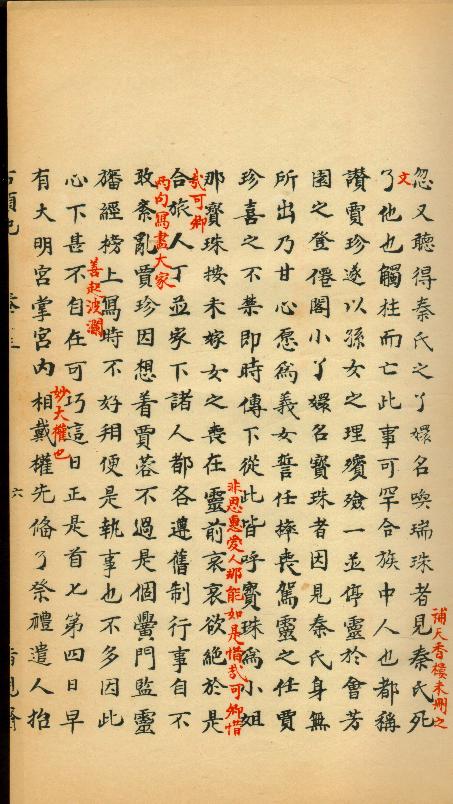 忽又聽得秦氏之丫嬛名喚瑞珠者見秦氏死
補天香樓未刪之
文
了他也觸柱而亡此事可罕合族中人也都稱
讚賈珍遂以孫女之理殯殮一並停靈於會芳
園之登僊閣小丫嬛名寶珠者因見秦氏身無
所出乃甘心愿為義女誓任摔喪駕靈之任賈
珍喜之不禁即時傳下從此皆呼寶珠為小姐
那寶珠按未嫁女之喪在靈前哀哀欲絕於是
非恩惠愛人那能如是惜哉可卿惜
哉可卿
合旅人丁並家下諸人都各遵舊制行事自不
两句寫盡大家
敢紊亂賈珍因想着賈蓉不過是個黌門監靈
旛經榜上寫時不好用便是執事也不多因此
善起波瀾
心下甚不自在可巧這日正是首七第四日早
有大明宮掌宮內相戴權先俻了祭禮遣人抬
妙大權也
六